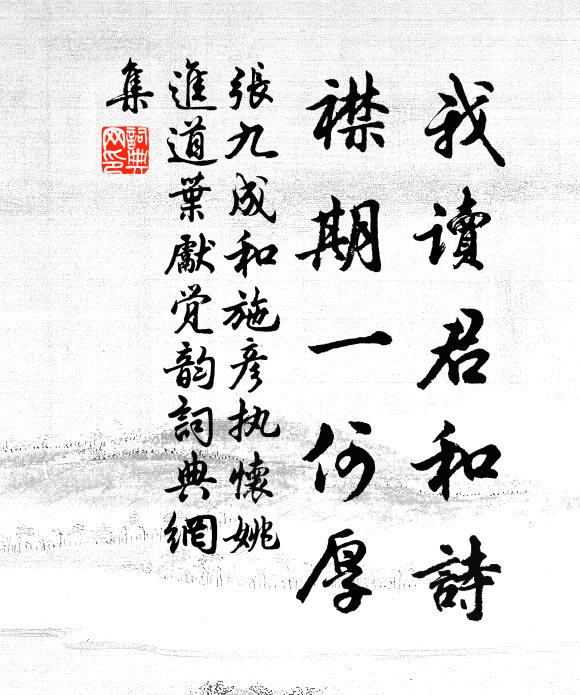 我讀君和詩
襟期一何厚
張九成和施彥执懷姚
進道葉獻覚韵詞典網
集
詞典
网印